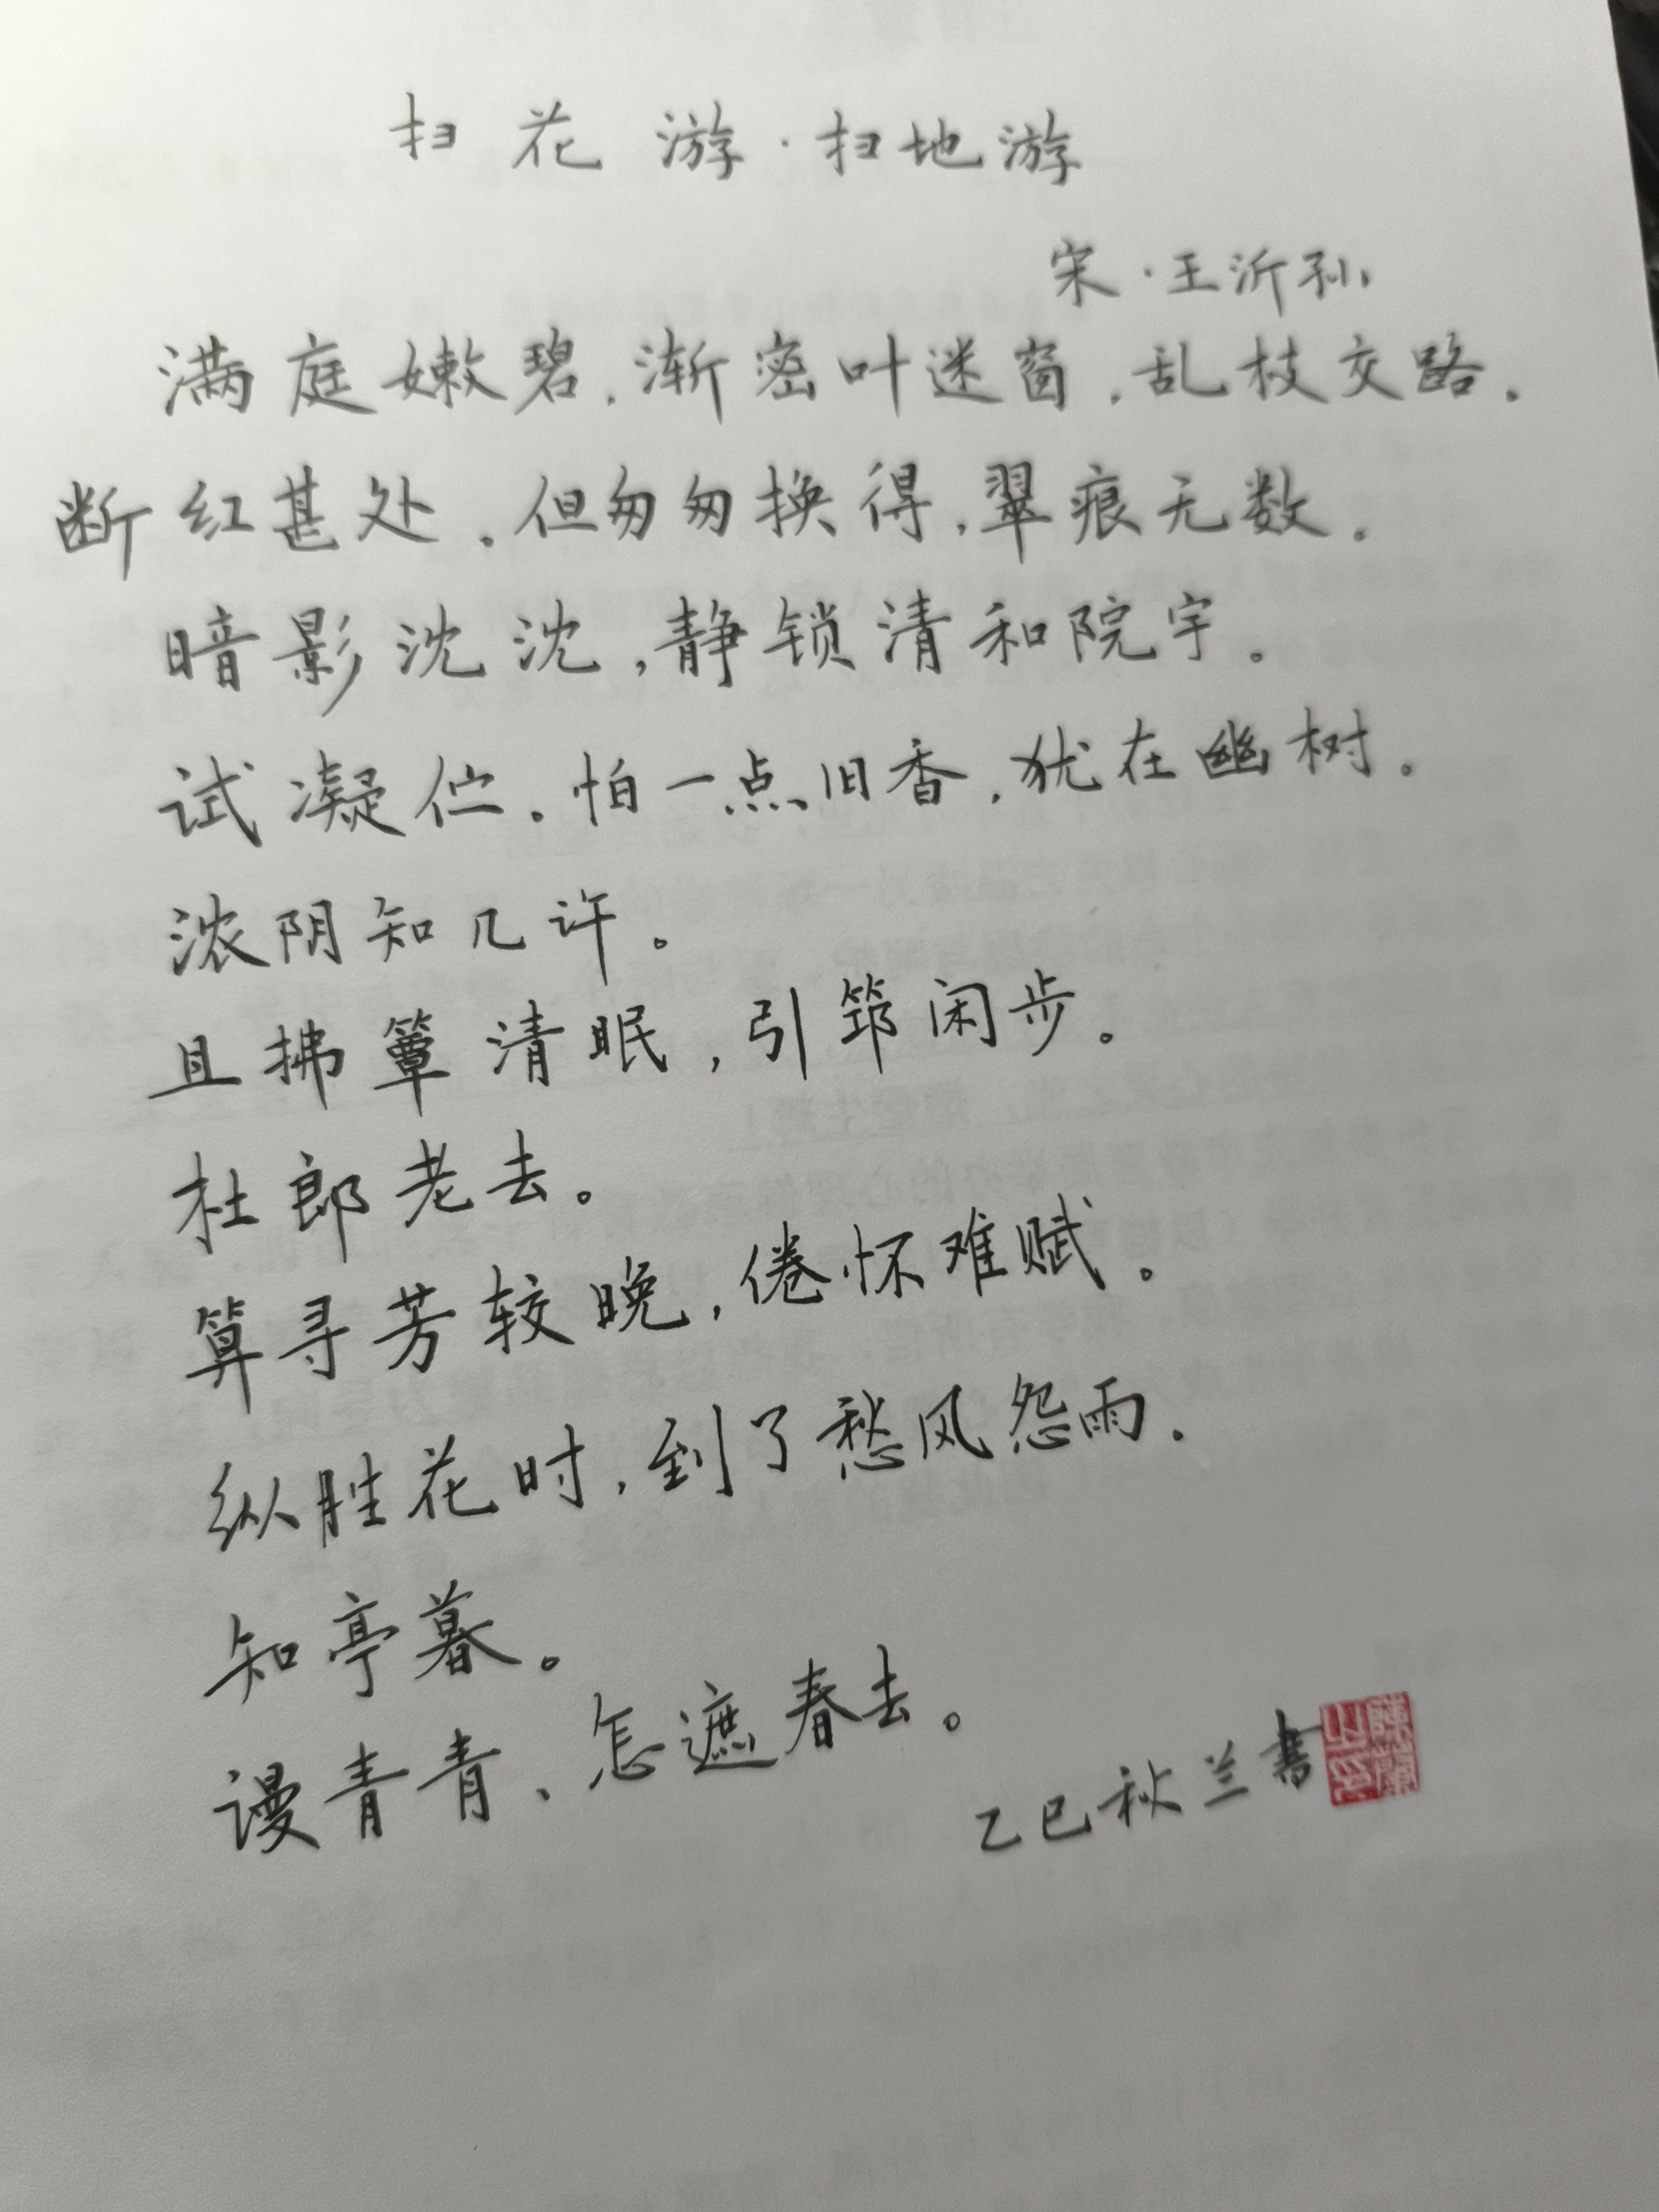 扫花游·扫地游
宋·王沂孙
满庭嫩碧,渐密叶迷窗,乱枝交路。
断红甚处。但匆匆换得,翠痕无数。
暗影沈沈,静锁清和院宇。
试凝伫。怕一点旧香,犹在幽树。
浓阴知几许。
且拂簟清眠,引筇闲步。
杜郎老去。
算寻芳较晚,倦怀难赋。
纵胜花时,到了愁风怨雨。
知亭暮。
谩青青、怎遮春去。
乙巳秋兰书